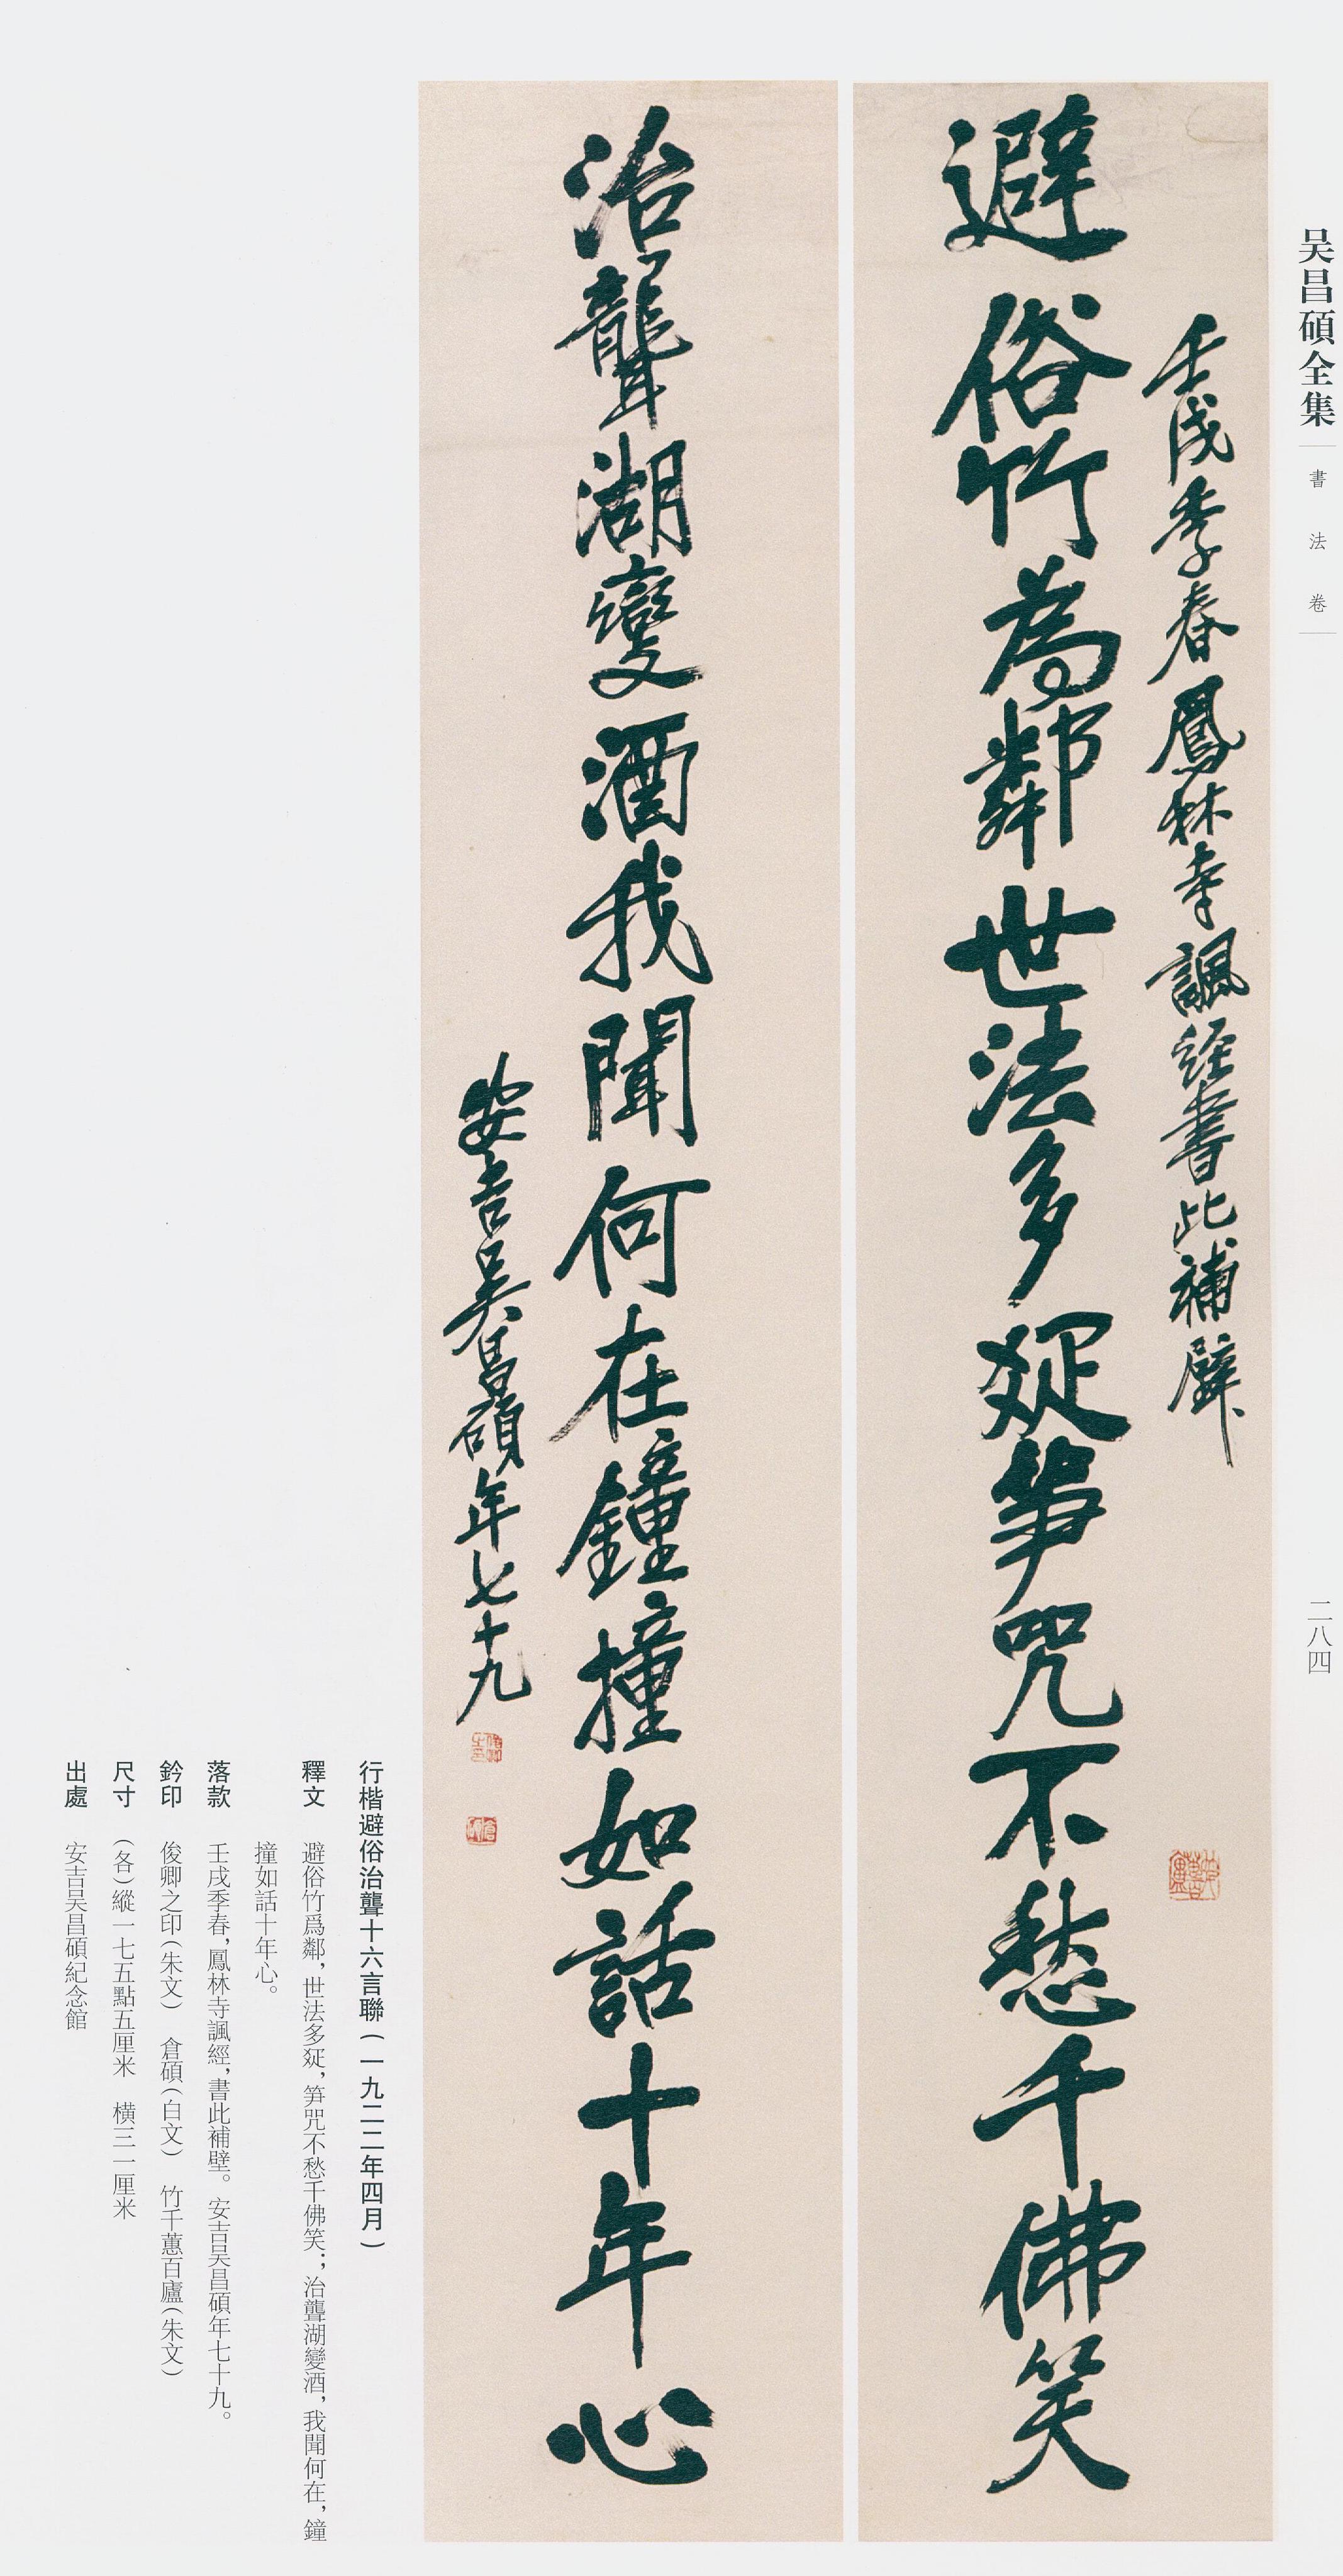 吴昌碩全集
書法卷
二八四
壬戌季春鳳林寺諷經書此補壁
避俗竹為鄰世法多㸚笋咒不愁千佛笑
治聾湖變酒我聞何在鐘撞如話十年心
安吉吴昌碩年七十九
行楷避俗治聾十六言聯(一九二二年四月)
釋文 避俗竹爲鄰，世法多㸚，笋咒不愁千佛笑；治聾湖變酒，我聞何在，鐘
撞如話十年心。
落款 壬戌季春，鳳林寺諷經，書此補壁。安吉吴昌碩年七十九。
鈐印 俊卿之印(朱文) 倉碩(白文) 竹千蕙百廬(朱文)
尺寸 (各)縱一七五點五厘米 橫三一厘米
出處 安吉吴昌碩紀念館